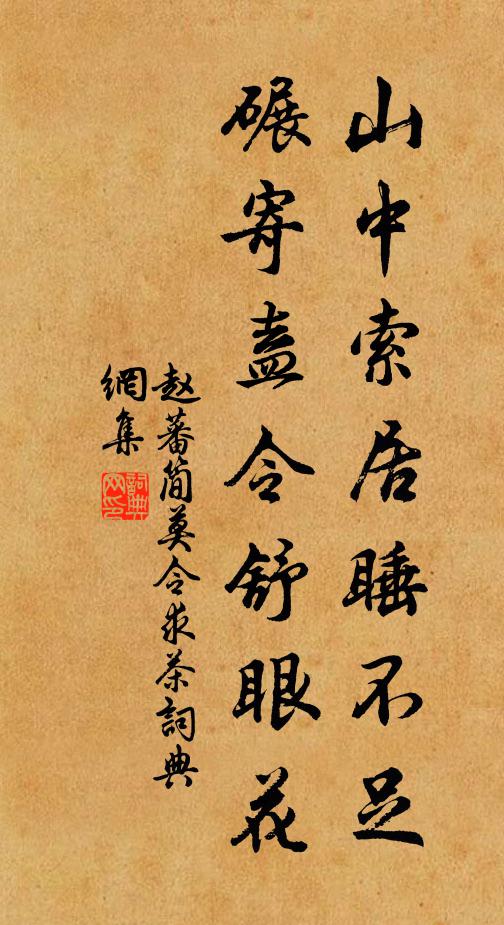 山中索居睡不足
碾寄盍令舒眼花
赵蕃简莫令求茶詞典
網集
詞典
网印